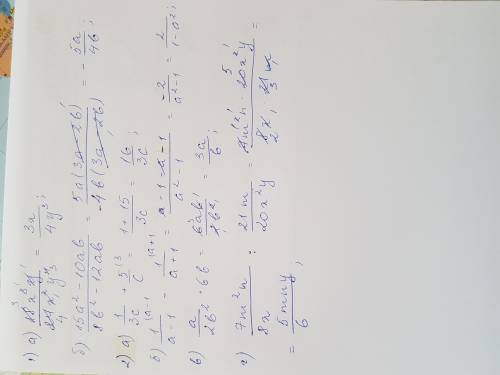 1) а) 18x³y / 24x²y⁴ = 3x / 4y³;
б) 15a² - 10ab / 8b² - 12ab = 5a(3a - 2b) / -4b(3a - 2b) = - 5a / 4b;
2) а) 1 / 3c + 5\3 / c = 1 + 15 / 3c = 16 / 3c;
б) 1\a-1 / a - 1 - 1\a+1 / a + 1 = a - 1 - a - 1 / a² - 1 = -2 / a² - 1 = 2 / 1 - a²;
в) a / 2b² · 6b = 6ab / 2b² = 3a / b;
г) 7m²n / 8x : 21m / 20x²y = 7m²n · 20x²y / 8x · 21m =
= 5mny / 6;